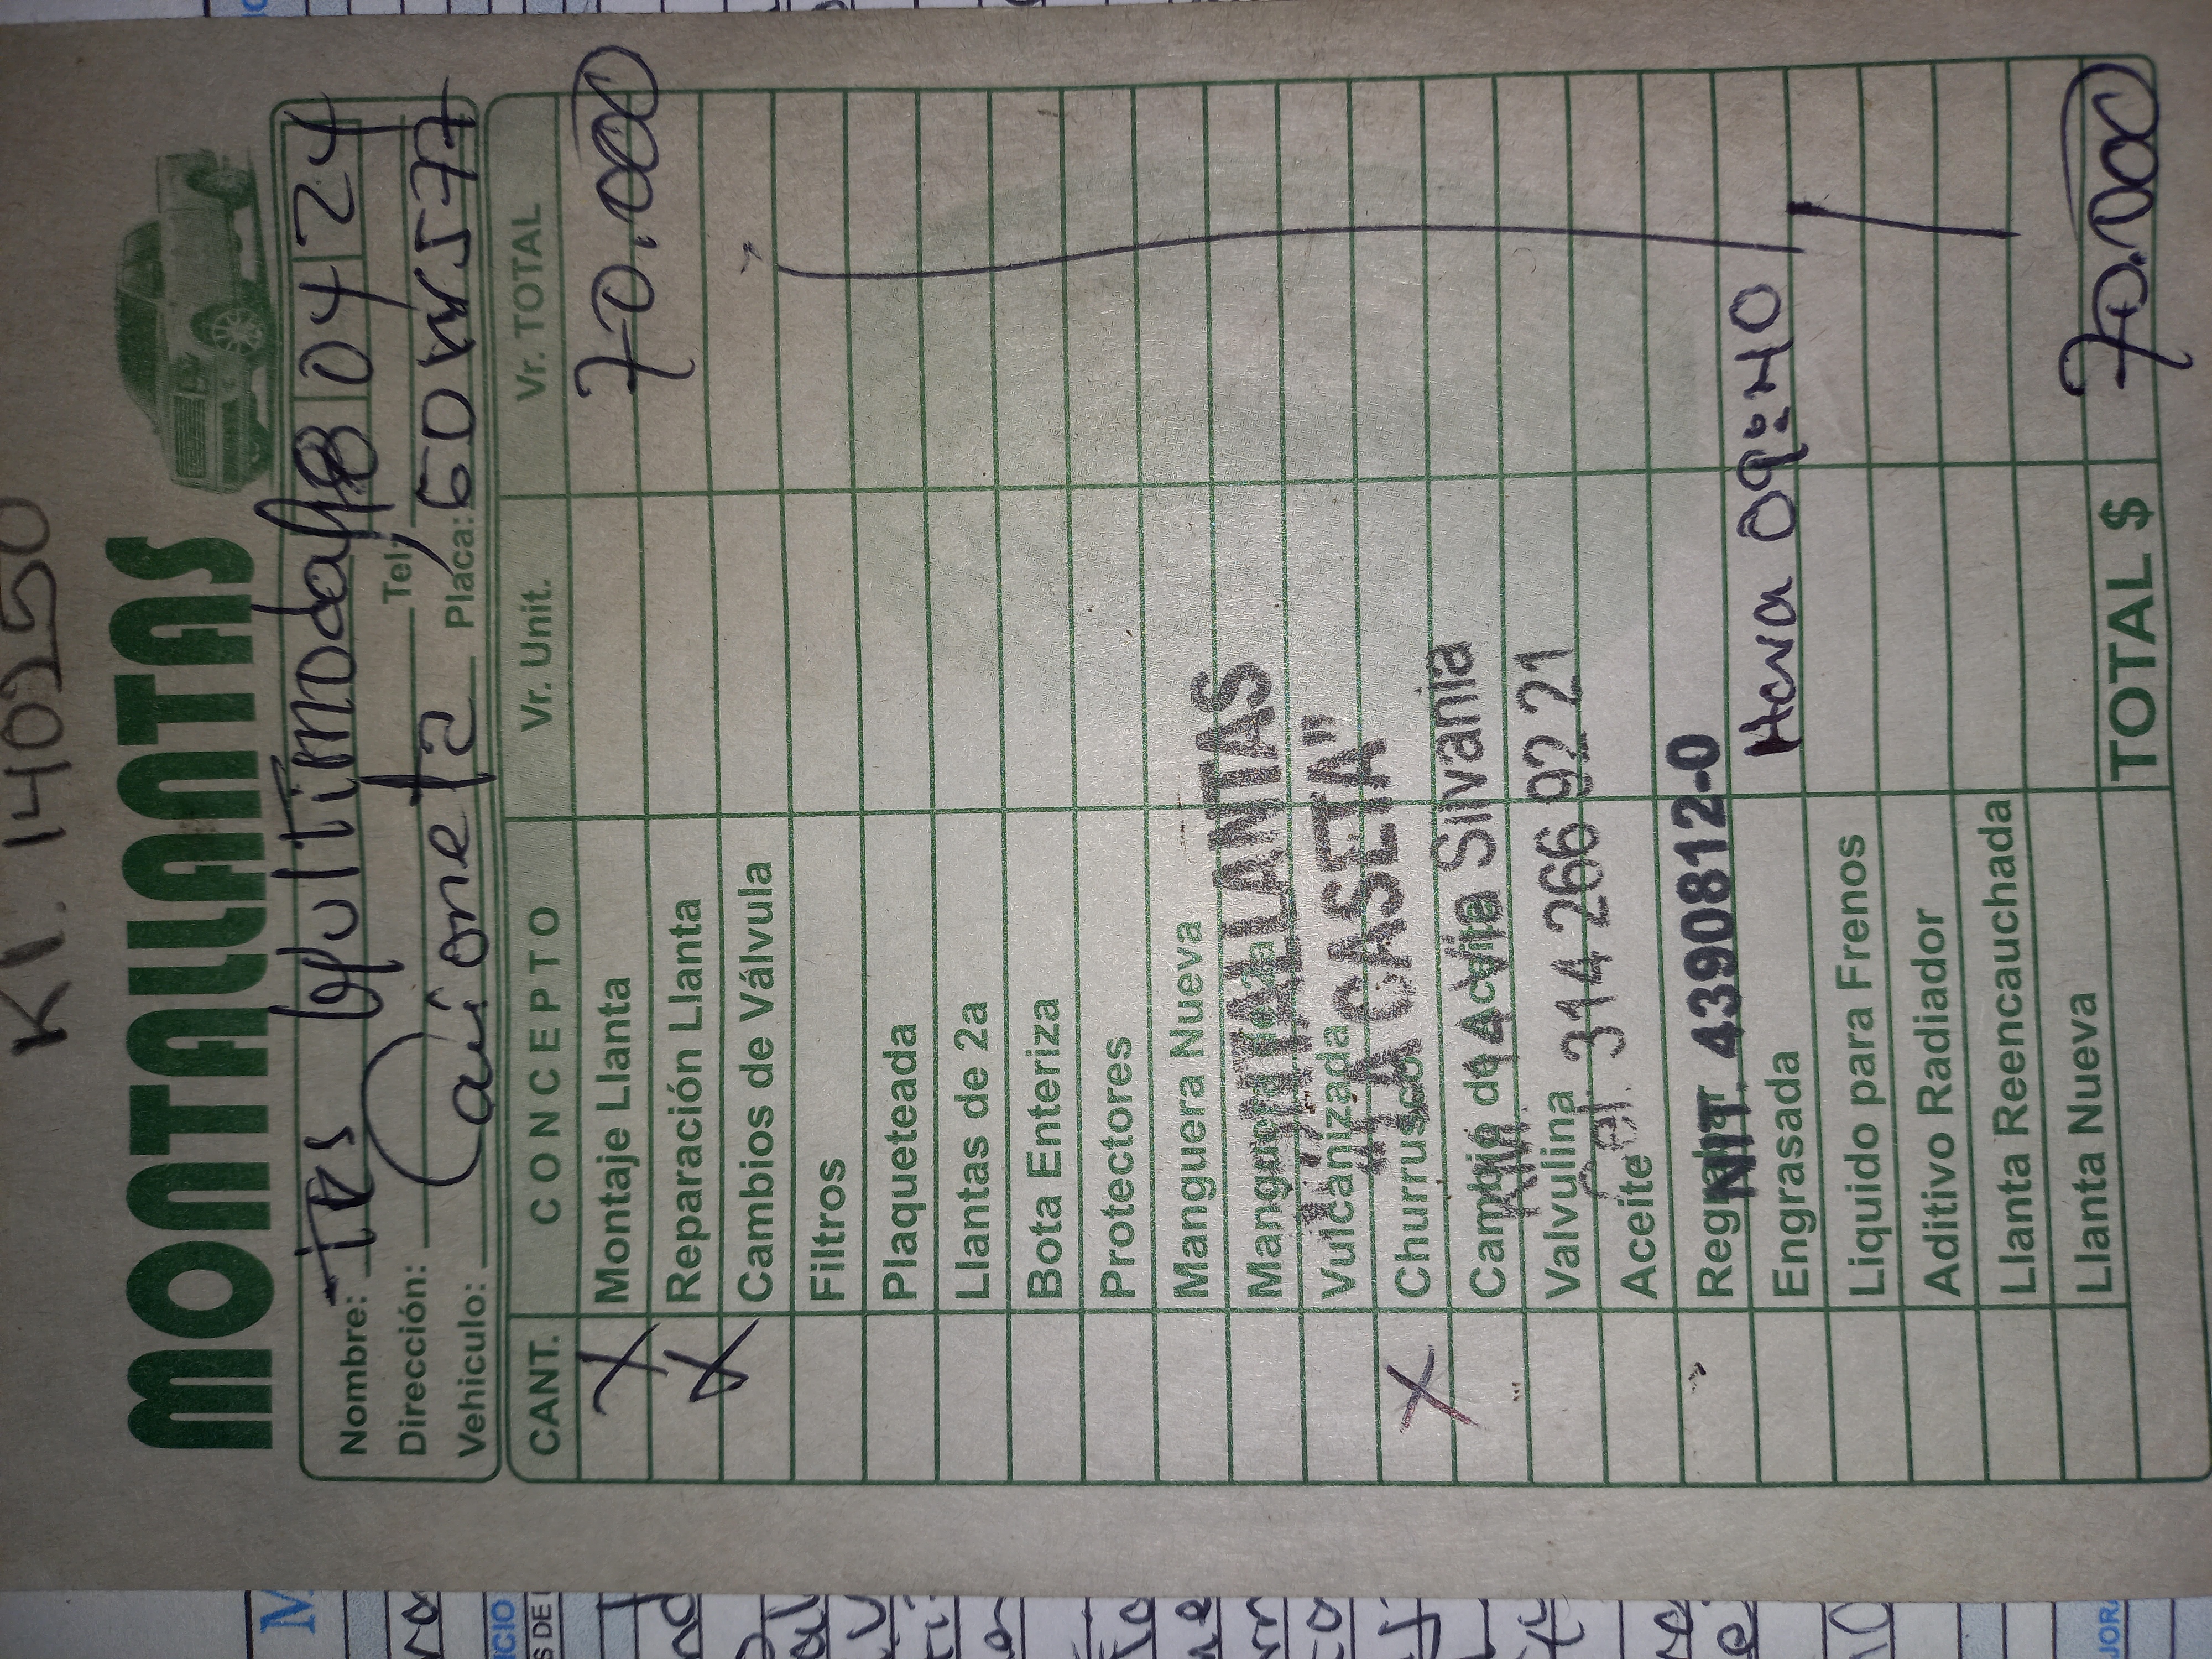 Kl. 140250
MONTALLANTAS
Nombre: TBS Multimodal 18 04 24
Dirección: Tel:
Vehiculo: Camioneta Placa: GDW577
CANT. CONCEPTO Vr. Unit. Vr. TOTAL
X Montaje Llanta 70.000
X Reparación Llanta
Cambios de Válvula
Filtros
Plaqueteada
Llantas de 2a
Bota Enteriza
Protectores
Manguera Nueva
Manguera
Vulcanizada
X Churrusco
Cambio de
Valvulina
Aceite
Engrasada
Liquido para Frenos
Aditivo Radiador
Llanta Reencauchada
Llanta Nueva
MONTALLANTAS
"LA CASETA"
Silvania
Cel. 314 266 92 21
NIT. 4390812-0
Hora 09:40
TOTAL $ 70.000